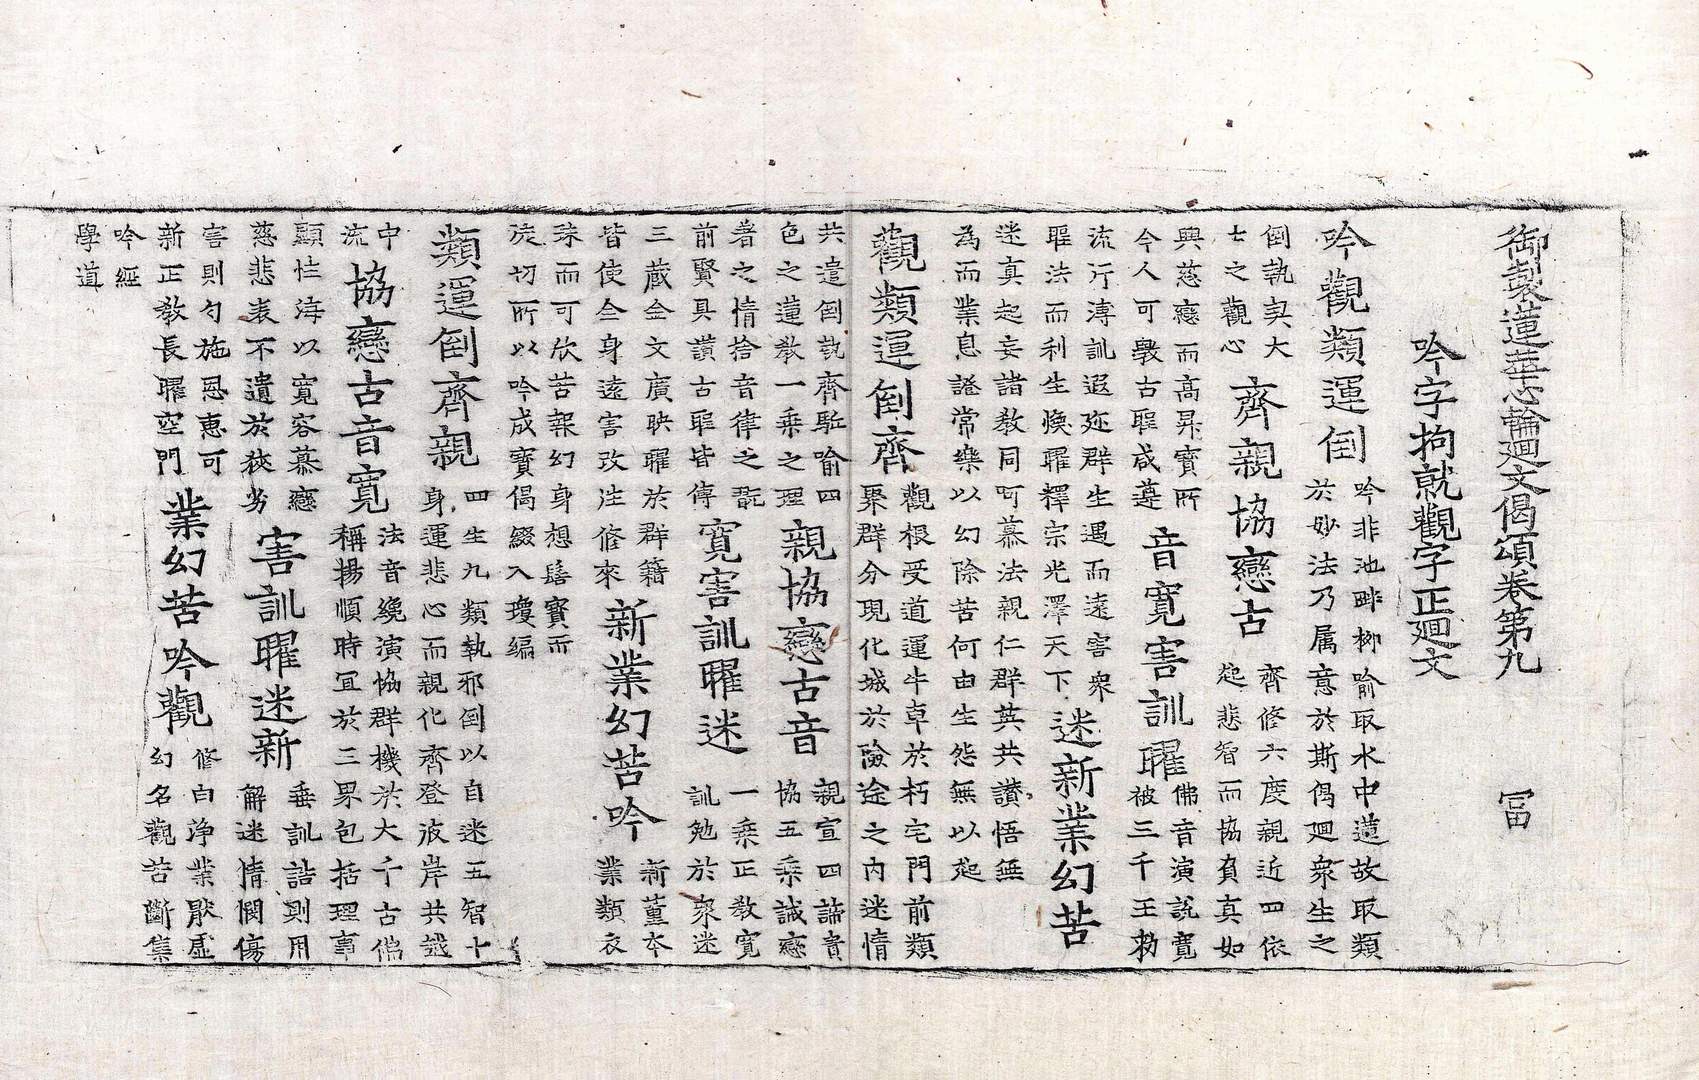 御製蓮華心輪廻文偈頌卷第九 冨
吟字拘就觀字正廻文
吟觀類運倒
吟非池畔柳喻取水中蓮故取類
於妙法乃属意於斯偈廻衆生之
倒執契大
七之觀心
齊親協戀古
齊修六度親近四依
起悲智而協負真如
興慈戀而高昇實所
今人可斅古聖咸遵
音寛害訓曜
佛音演說寛
被三千王勑
流行溥訓遐迩群生遇而遠害衆
聖法而利生煥曜釋宗光澤天下
迷新業幻苦
迷真起妄諸教同呵慕法親仁群英共讃悟無
為而業息證常樂以幻除苦何由生怨無以起
觀類運倒齊
觀根受道運牛車於朽宅門前類
聚群分現化城於險途之内迷情
共遣倒執齊駈喻四
色之蓮教一乗之理
親協戀古音
親宣四諦音
協五乗誠戀
着之情捨音律之翫
前賢具讃古聖皆傳
寛害訓曜迷
一乗正教寛
訓勉於衆迷
三蔵金文廣映曜於群籍
皆使全身遠害改往修來
新業幻苦吟
新薰本
業類衣
珠而可欣苦報幻身想髻寳而
旋切所以吟成寳偈綴入瓊編
類運倒齊親
四生九類執邪倒以自迷五智十
身運悲心而親化齊登彼岸共越
中
流
協戀古音寛
法音纔演恊群機於大千古佛
稱揚順時冝於三界包括理事
顯性海以寛容慕戀
慈悲表不遺於狹劣
害訓曜迷新
垂訓誥則用
解迷情憫傷
害則勺施恩惠可
新正教長曜空門
業幻苦吟觀
修白浄業猒虚
幻名觀苦斷集
吟經
學道